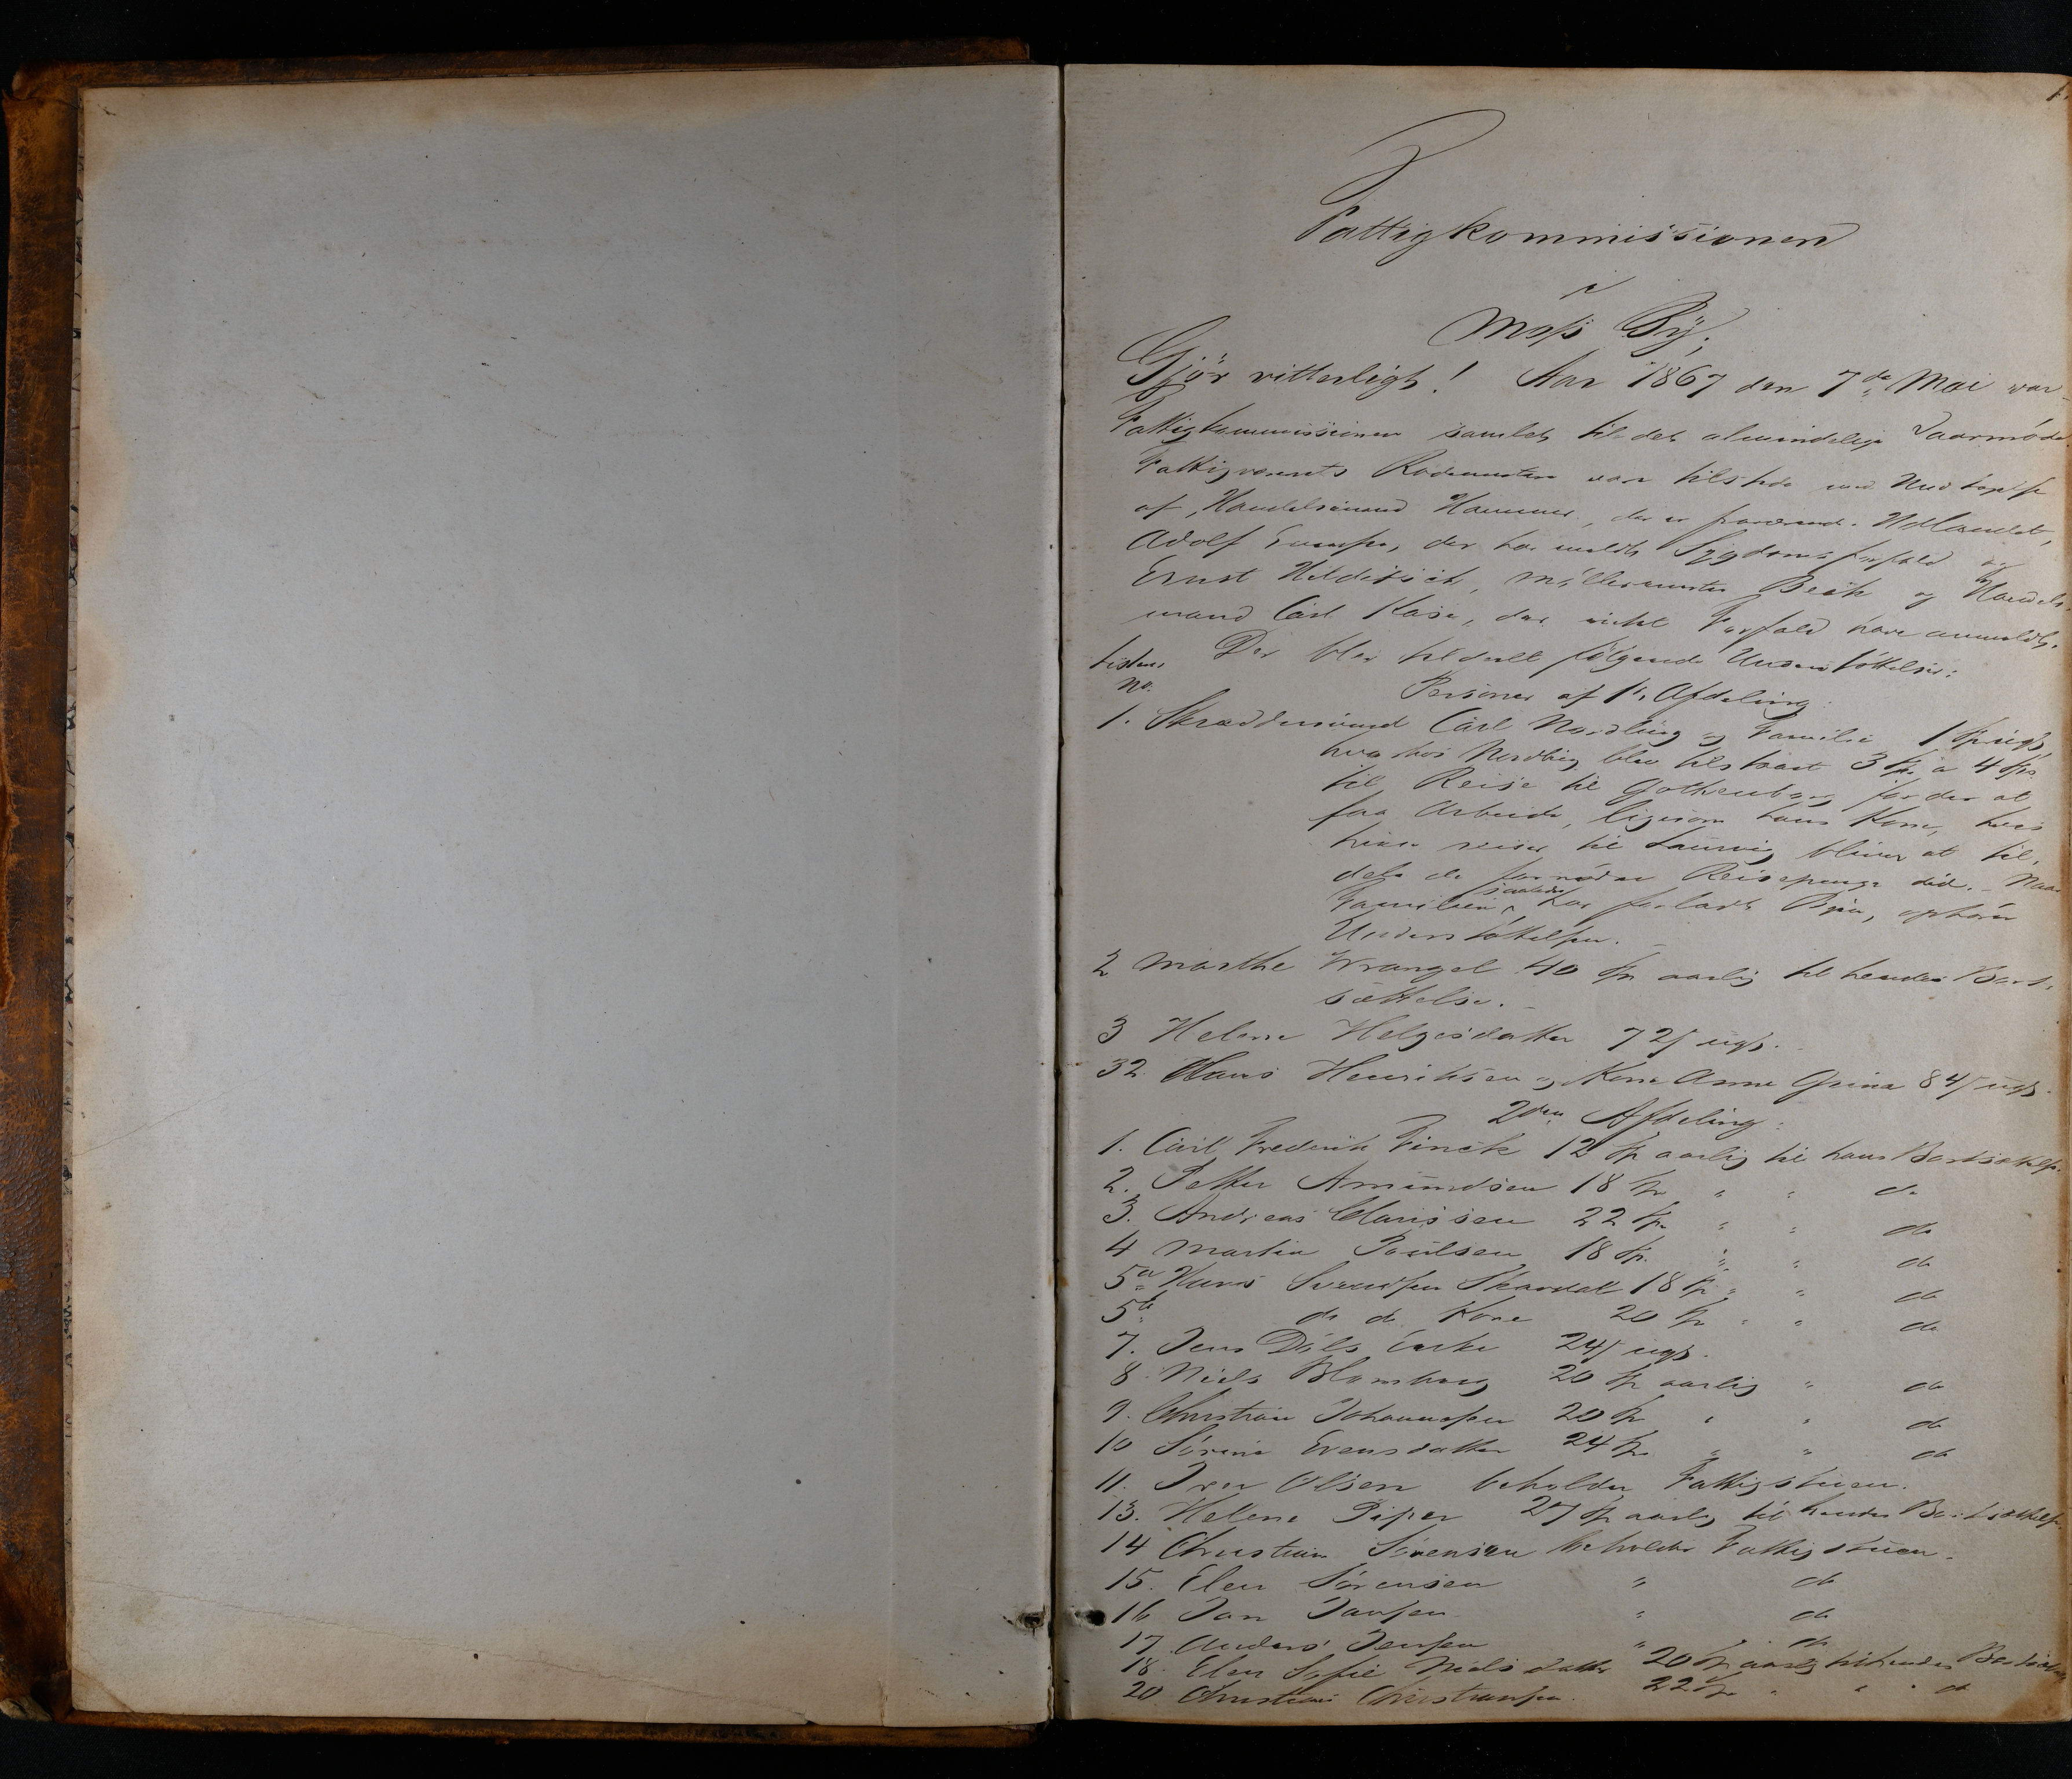 1.
Fattigkommissionen
i
Moss By;
Gjör vitterligt! Aar 1867 den 7de Mai var
Fattigkommissionen samlet til det almindelige Vaarmöde.
Fattigvæsenets Rodemestere var tilstede med Undtagelse
af, Handelsmand Hammer, der er fraværende i Udlandet,
Adolf der har meldt Sygdomsforfald og
Ernst Hilditsch, Möllermester Beck og Handels-
mand Carl der intet Forfald have anmeldt.
Der blev tildeelt fölgende Understöttelser:
Listens
No.
Personer af 1ste Afdeling:
1. Skreddersvend Carl Nordling og Familie 1 Sp ugtl,
hvorhos Nordling blev tilstaaet 3 Sp. a 4 Sp.
til Reise til Gothenborg for der at
faa Arbeide, ligesom hans Kone, hvis
hun reiser til Laurvig bliver at til-
dele de fornödne Reisepenge did. - Naar
Familien saaledes har forladt Byen, ophörer
Understöttelsen. -
2 Marthe Wrangel 40 Sp aarlig til hendes Bort-
sættelse. -
3 Helene Helgesdatter 72 ſ ugtl. -
32. Hans Henriksen og Kone Anne Grine 84 ſ ugtl.
2den Afdeling:
1. Carl Frederik Finck 12 Sp aarlig til hans Bortsættelse.
2. Petter Amundsen 18 Sp " " do
3. Andreas Claussen 22 Sp. " " do
4 Martin Poulsen 18 Sp. " " do
5a Hans Svendsen Skardal 18 Sp " " do
5b do do Kone 20 Sp " " do
7. Jens Dåls Enke 24 ſ ugtl.
8. Niels Blomberg 20 Sp aarlig " do
9. Christian Johannesen 20 Sp " " do
10 Sörine Evensdatter 24 Sp. " " do
11. Iver Olsen beholder Fattigstuen.
13. Helene Piper 27 Sp aarlig til hendes Bortsættelse
14 Christian Sörensen beholder Fattigstuen.
15. Elen Sörensen " do
16 Jan Jansen " do
17 Anders Jensen " do
18. Elen Sofie Nielsdatter 20 Sp aarlig til hendes Bortsættelse
20. Christian Christiansen. 22 Sp " " " do